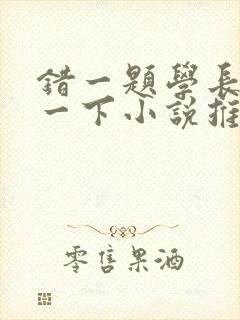 錯一題學長
一下小說推
零售果酒